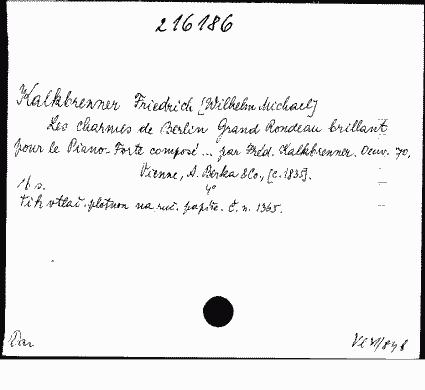 216186
Kalkbrenner Friedrich [Wilhelm Michael]
Les charmes de Berlin Grand Rondeau brillant
pour le Piano-Forte composé ... par Fréd. Kalkbrenner. Oeuv. 70.
Vienne, A. Berka & Co., [c. 1835].
16 s. 4°
tik vtlač. plotnou na ruč. papiče. Č. n. 1365.
Dar